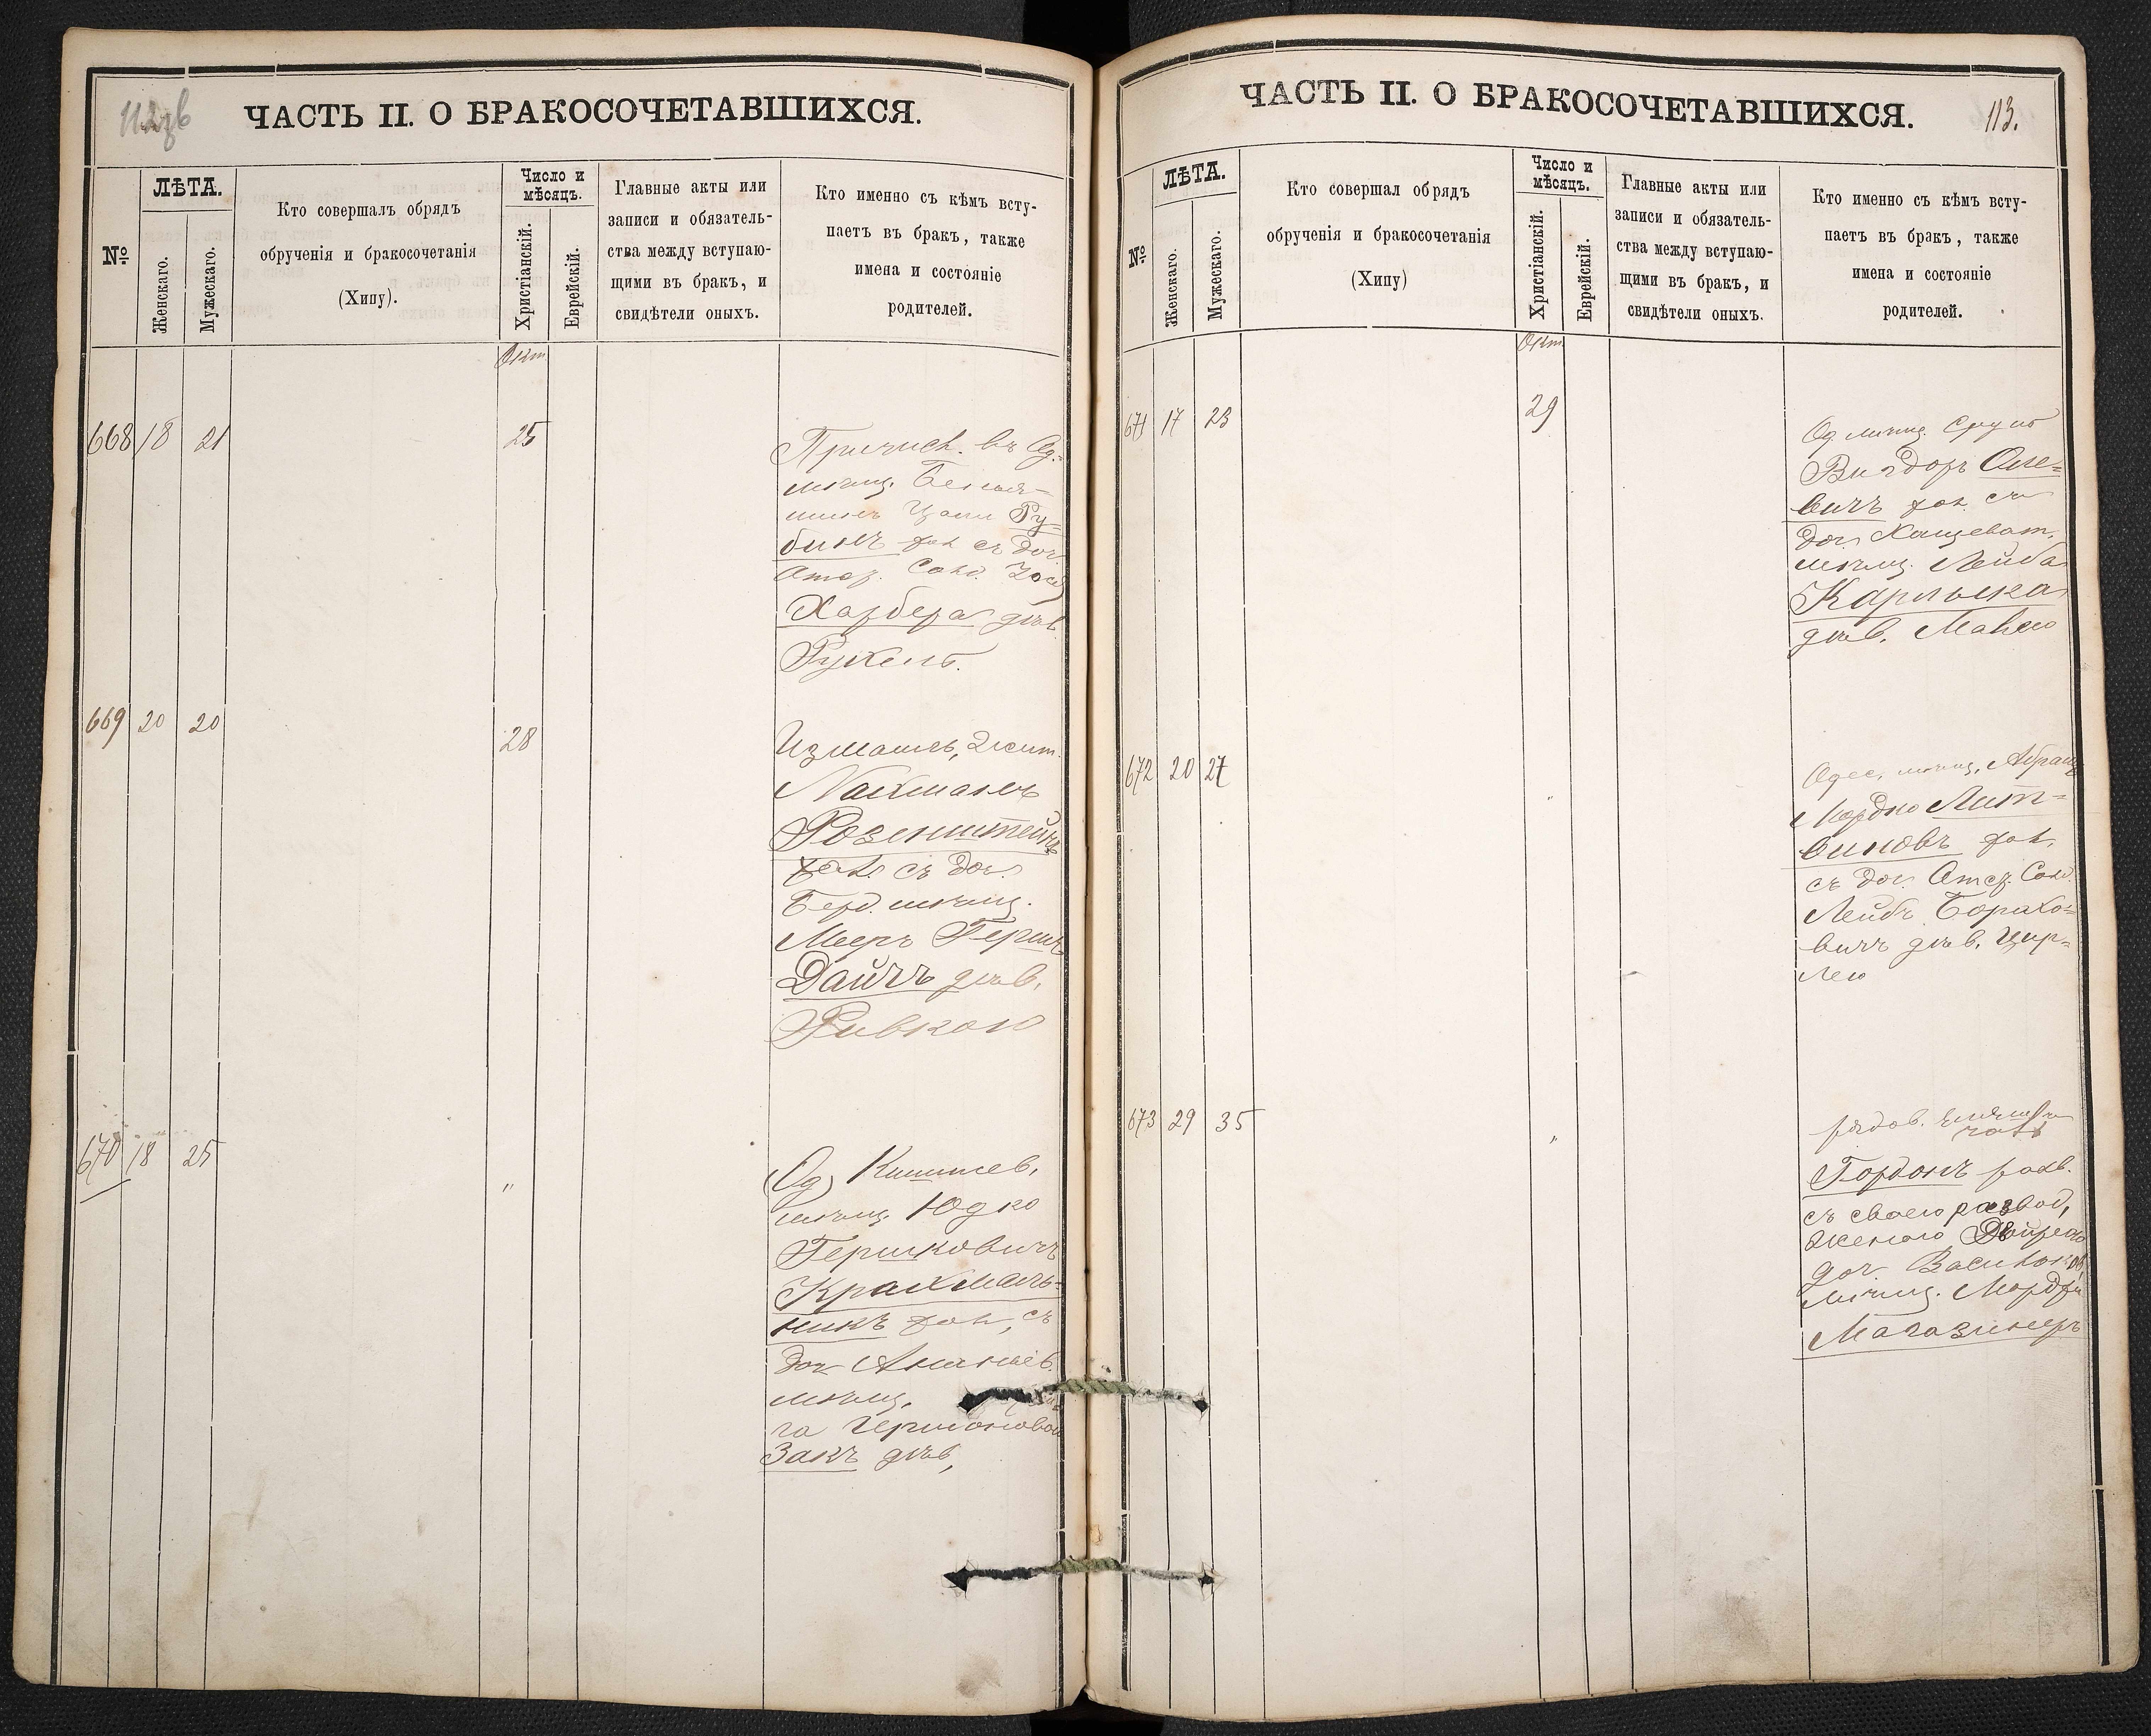 ЧАСТЬ II. О БРАКОСОЧЕТАВШИХСЯ.
№
ЛѢТА.
Женскаго.
Мужескаго.
Кто совершалъ обрядъ
обрученія и бракосочетанія
(Хипу).
Число и
мѣсяцъ.
Христіанскій.
Еврейскій.
Главные акты или
записи и обязатель-
ства между вступаю-
щими въ бракъ, и
свидѣтели оныхъ.
Кто именно съ кѣмъ всту-
паетъ въ бракъ, также
имена и состояніе
родителей.
Окт
668 18 21 25
Причисл. въ Од.
мѣщ.
Ру-
бинъ хол съ доч.
Отст. Солд.
Харбера дѣв.
669 20 20 28
Измаиль, жит.
Нахманъ
Розенштейнъ
хол. съ доч.
Берд. мѣщ.
Меер Герш
Дайчъ дѣв.
Ривкою
670 18 25 "
Од Кишинев.
мѣщ. Юдко
Гершковичъ
Крахмаль-
никъ хол, съ
доч Ананьев.
мѣщ.
Закъ дѣв,
ЧАСТЬ II. О БРАКОСОЧЕТАВШИХСЯ.
113.
№
ЛѢТА.
Женскаго.
Мужескаго.
Кто совершал обрядъ
обрученія и бракосочетанія
(Хипу)
Число и
мѣсяцъ.
Христіанскій.
Еврейскій.
Главные акты или
записи и обязатель-
ства между вступаю-
щими въ бракъ, и
свидѣтели оныхъ.
Кто именно съ кѣмъ всту-
паетъ въ бракъ, также
имена и состояніе
родителей.
Окт
671 17 23 29
Од. мѣщ. Сруль
Вигдоръ
вичъ хол. съ
доч. Хащеват.
мѣщ. Лейба
дѣв.
672 20 27 "
Одес. мѣщ. Абрамъ
Мордко Лит-
виновъ хол.
съ доч. Отст. Солд.
Лейбъ Борахо-
вичъ дѣв. Цир-
лею
673 29 35 "
рядов.
Гордонъ разв.
съ своею развод,
женою Двойрею
доч. Васильков,
мѣщ.
Магазинеръ